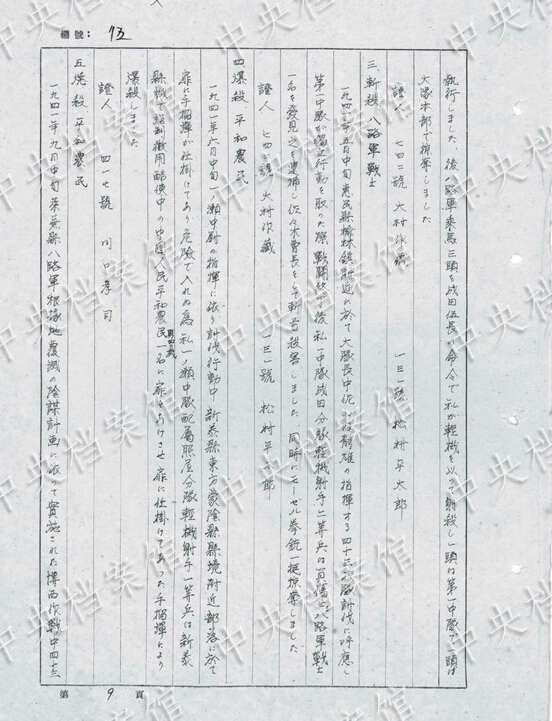 檔號：73
執行しました、後八路軍乘馬三頭を成田伍長の命令で私が輕機を以て射殺し一頭は第一中隊で一頭は
大隊本部で掠奪しました
證人　七四二號　大村作藏　一三一號　松村平太郎
三、斬殺　八路軍戰士
一九四一年五月中旬惠民縣榆林鎮附近に於て大隊長中佐の指揮する四十三大隊討伐に呼應し
第一中隊が獨立行動を取つた際戰鬪終了後私一中隊成田分隊輕機射手二等兵は負傷八路軍戰士
一名を發見之を逮捕し佐々木曹長をして斬首殺害しました　同時にモーゼル拳銃一挺掠奪しました
證人　七四二號　大村作藏　一三一號　松村平太郎
四、爆殺　平和農民
一九四一年六月中旬一瀨中尉の指揮に依り討伐行動中　新泰縣東方蒙陰縣縣境附近部落に於て
扉に手榴彈が仕掛けてあり危險で入れぬ爲私一瀨中隊配屬照屋分隊輕機射手一等兵は新泰
縣城で強制徵用酷使中の中國人民平和農民一名に扉をあけさせ扉に仕掛けてあつた手榴彈により
爆殺しました
證人　四一七號　川口孝司
五、燒殺　平和農民
一九四一年九月中旬萊蕪縣八路軍根據地覆滅の陰謀計畫に依つて實施された博西作戰中四十三
第9頁
中央档案馆